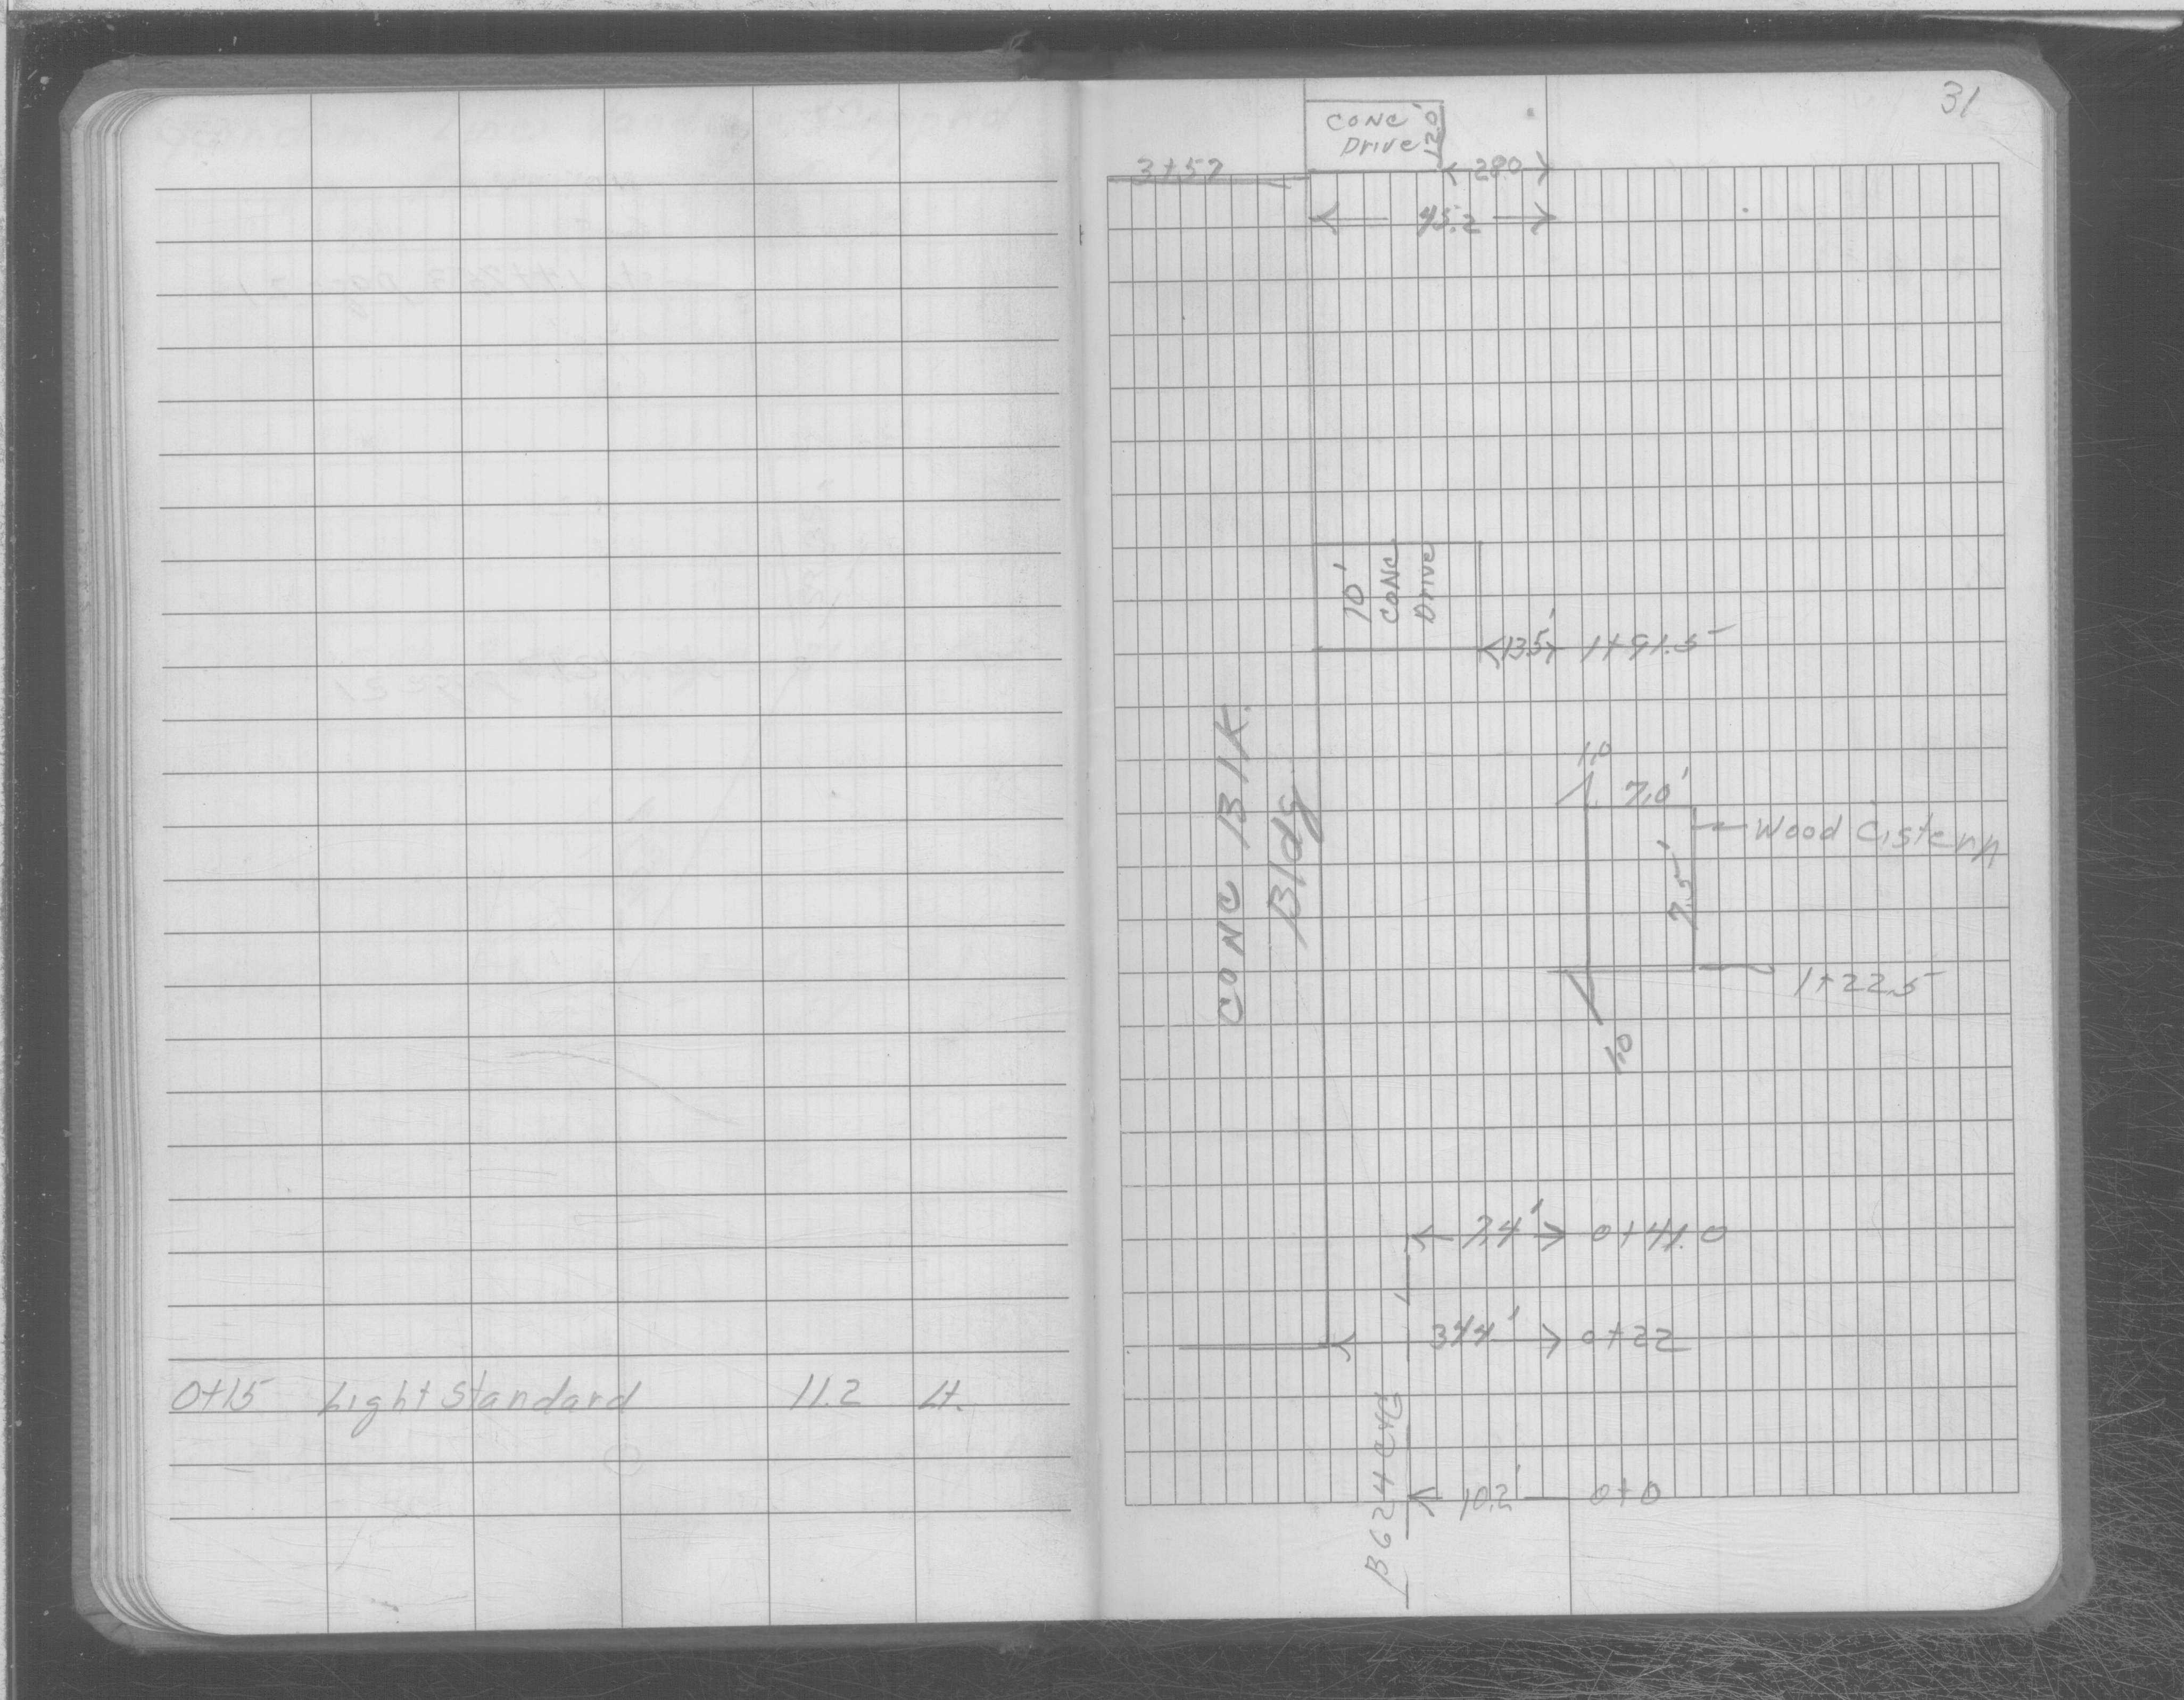 0+15 Light Standard 11.2 Lt.
31
CONC
Drive
12.0'
3+57
28.0
45.2
10'
CONC
Drive
13.5' 1+91.5
CONC Blk.
Bldg
1.0
7.0'
Wood Cistern
7.5'
1+22.5
1.0
7.4' 0+41.0
34.4' 0+22
B624 C&G
10.2' 0+0